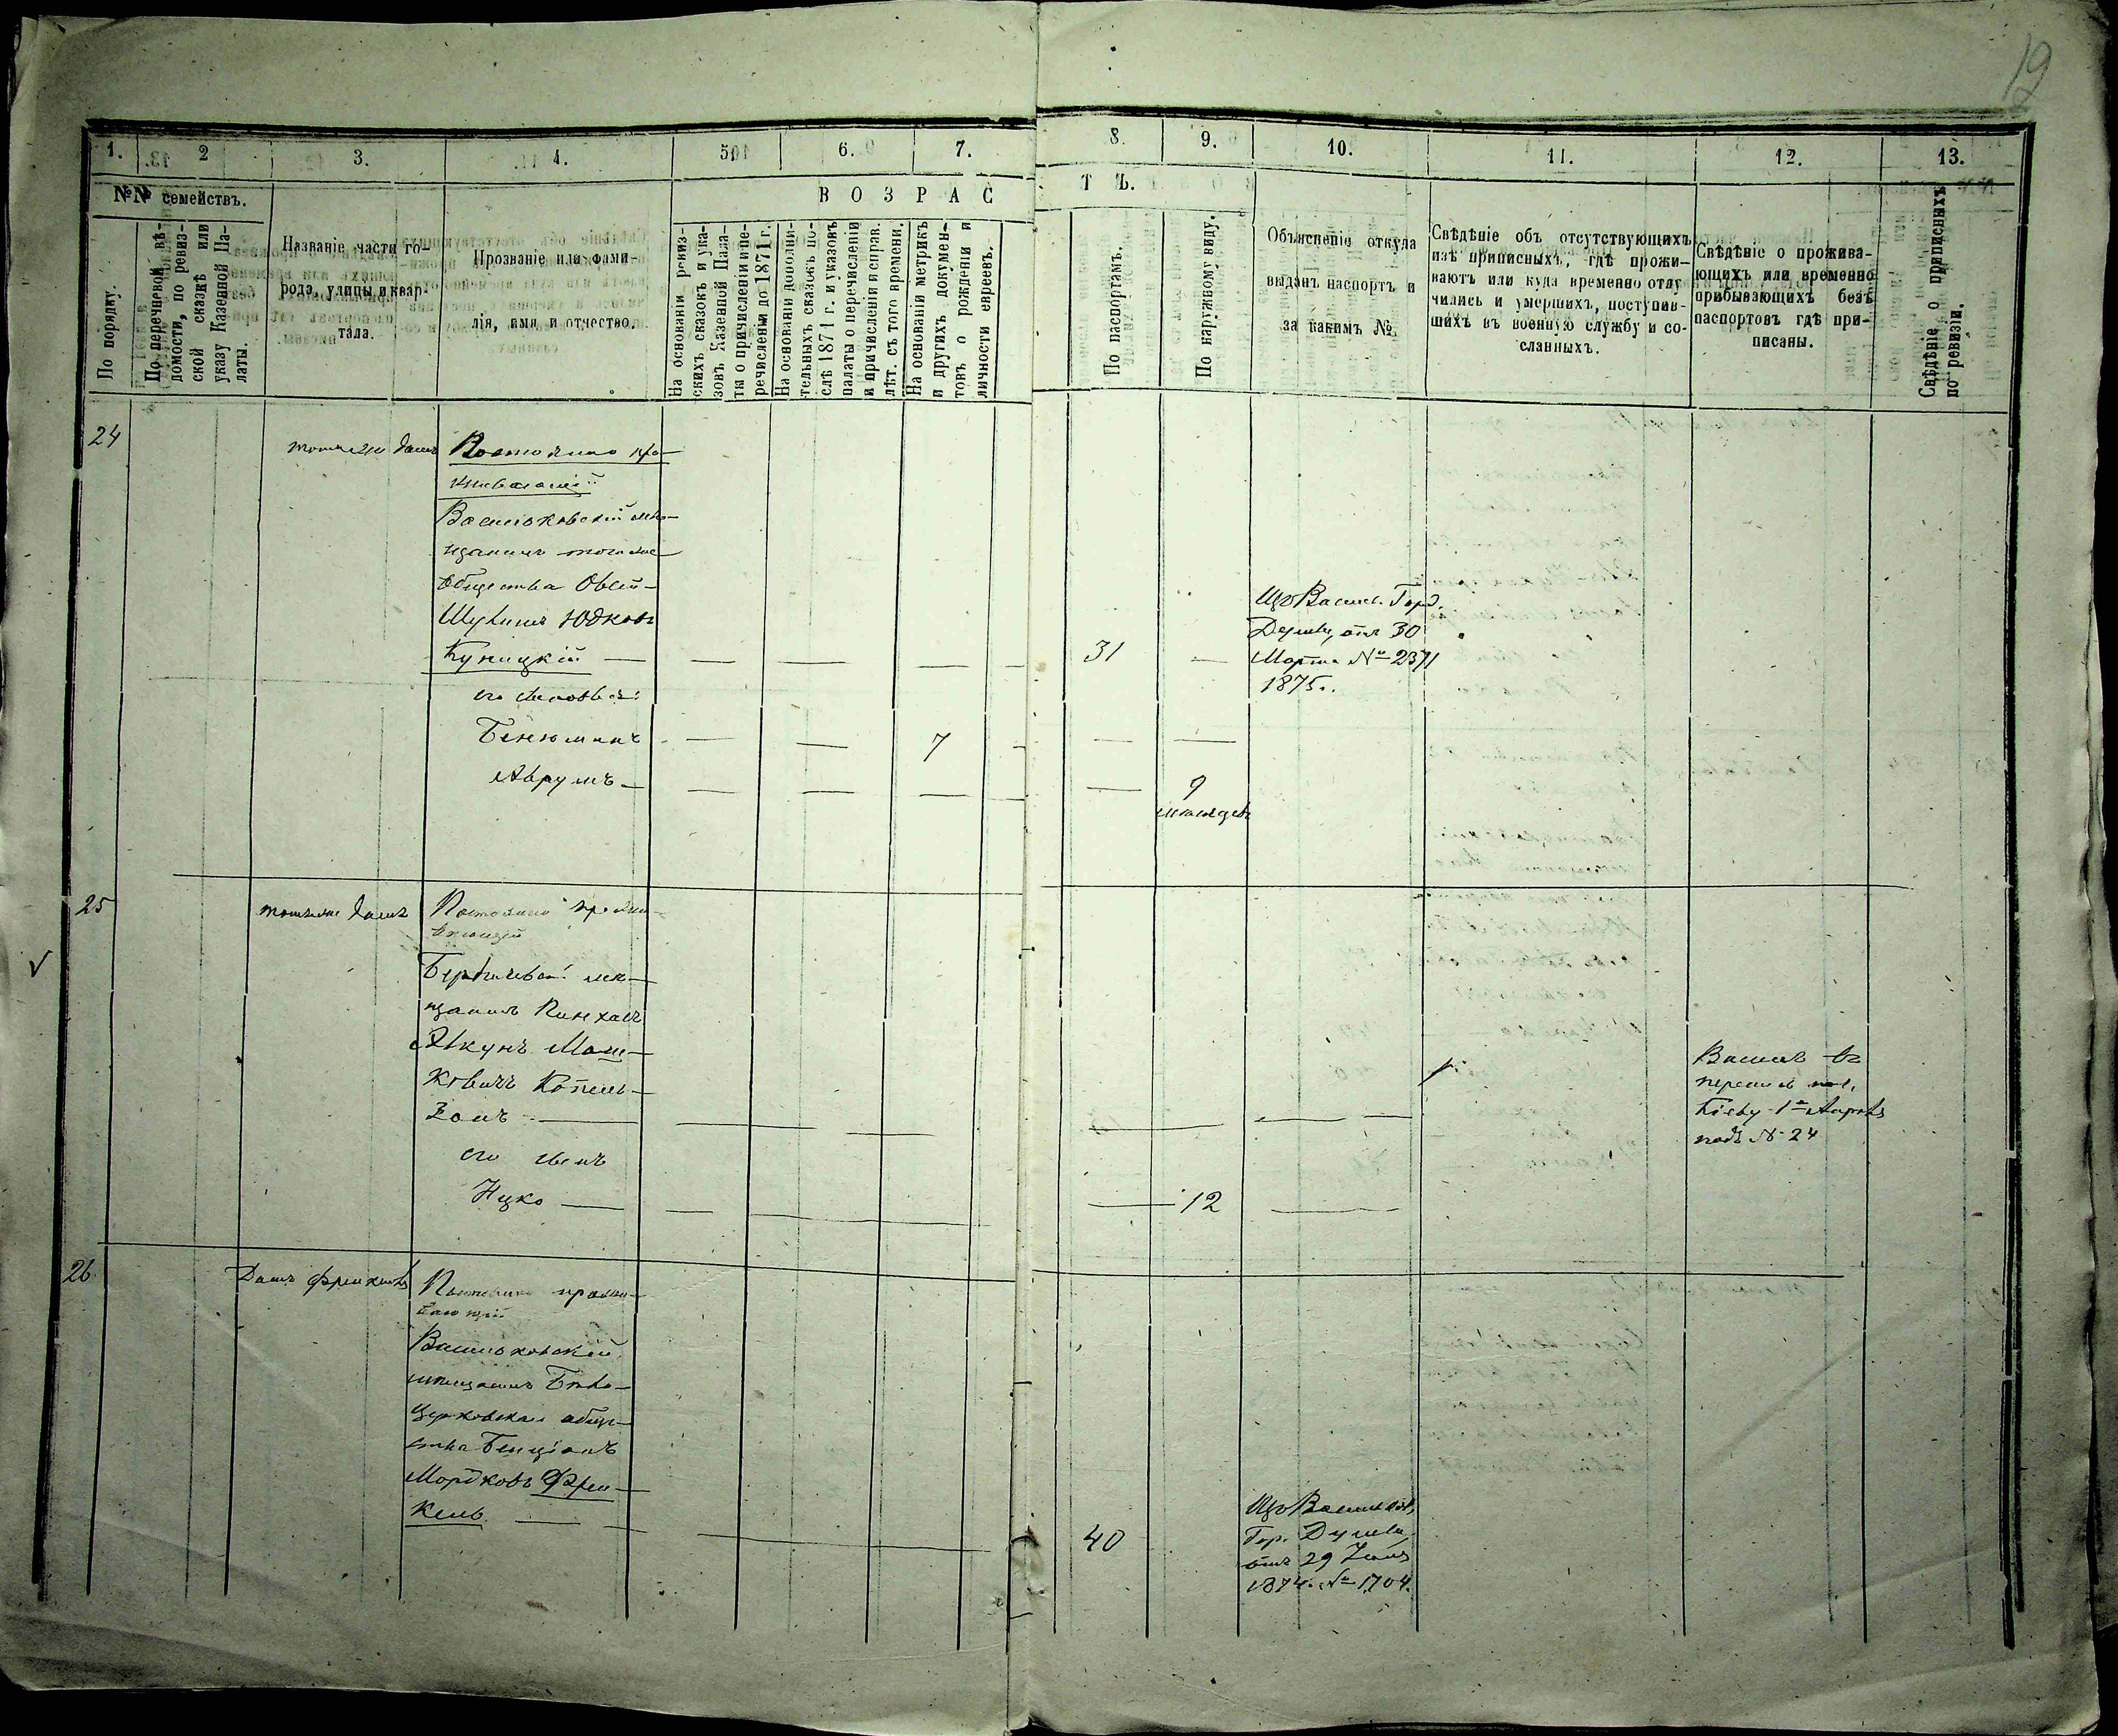 19
1. 2 3. 4. 5. 6. 7. 8. 9. 10. 11. 12. 13.
№№ семействъ.
В О З Р А С Т Ъ.
По порядку.
По перечневой вѣ-
домости, по ревиз-
ской сказкѣ или
указу Казенной Па-
латы.
Названіе части го-
рода, улицы и квар-
тала.
Прозваніе или фами-
лія, имя и отчество.
На основаніи ревиз-
скихъ сказокъ и ука-
зовъ Казенной Пала-
ты о причисленіи и пе-
речисленіи до 1871 г.
На основаніи дополни-
тельныхъ сказокъ по-
слѣ 1871 г. и указовъ
палаты о перечисленіи
и причисленіи и справ.
лѣт. съ того времени.
На основаніи метрикъ
и другихъ докумен-
товъ о рожденіи и
личности евреевъ.
По паспортамъ.
По наружному виду.
Объясненіе откуда
выданъ паспортъ и
за какимъ №.
Свѣдѣніе объ отсутствующихъ
изъ приписныхъ, гдѣ прожи-
ваютъ или куда временно отлу
чились и умершихъ, поступив-
шихъ въ военную службу и со-
сланныхъ.
Свѣдѣніе о прожива-
ющихъ или временно
прибывающихъ безъ
паспортовъ гдѣ при-
писаны.
Свѣдѣніе о приписныхъ
по ревизіи.
24
томъ же домѣ
Постоянно про-
живающій
Васильковскій мѣ-
щанинъ того же
общества Овсей-
Шулимъ Юдковъ
Куницкій
31
Изъ Васильк. Город.
Думы, отъ 30
Марта № 2371
1875г.
его сыновья:
Бенюминъ
7
Аврумъ
9
мѣсяцевъ
25
томъ же домѣ
Постоянно прожи-
вающій
Бердичевскій мѣ-
щанинъ Пинхасъ
Янкунъ Мош-
ковичъ Копель-
зонъ
Вписанъ въ
перепись по г.
Кіеву 1го Апрѣля
подъ № 24
его сынъ
Ицко
12
26
Домъ Френкеля
Постоянно прожи-
вающій
Васильковскій
мѣщанинъ Бѣло-
церковскаго обще-
ства Бенціонъ
Мордковъ Френ-
кель
40
Изъ Васильков.
Гор. Думы,
отъ 29 Іюня
1874. № 1704.